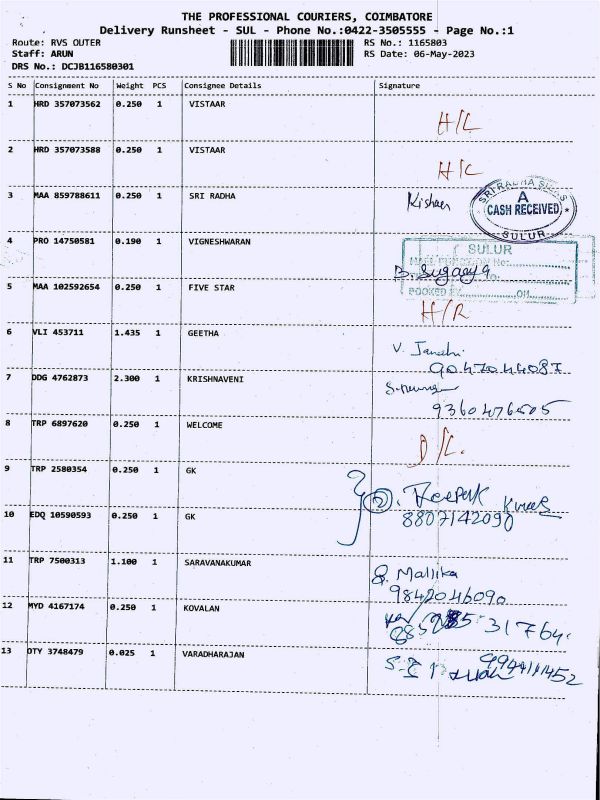 THE PROFESSIONAL COURIERS, COIMBATORE
Delivery Runsheet - SUL - Phone No.:0422-3505555 - Page No.:1
Route: RVS OUTER RS No.: 1165803
Staff: ARUN RS Date: 06-May-2023
DRS No.: DCJB116580301
S No Consignment No Weight PCS Consignee Details Signature
1 HRD 357073562 0.250 1 VISTAAR
H/C
2 HRD 357073588 0.250 1 VISTAAR
H/C
3 MAA 859788611 0.250 1 SRI RADHA Kishan
SRI RADHA
A
CASH RECEIVED
SULUR
4 PRO 14750581 0.190 1 VIGNESHWARAN
SULUR
B. Sugaaya
BOOKED BY
5 MAA 102592654 0.250 1 FIVE STAR
H/R
6 VLI 453711 1.435 1 GEETHA
V.
7 DDG 4762873 2.300 1 KRISHNAVENI
8 TRP 6897620 0.250 1 WELCOME
D/C.
9 TRP 2580354 0.250 1 GK
Deepak Kumar
10 EDQ 10590593 0.250 1 GK 8807142090
11 TRP 7500313 1.100 1 SARAVANAKUMAR
Mallika
9842046090
12 MYD 4167174 0.250 1 KOVALAN
31764
13 OTY 3748479 0.025 1 VARADHARAJAN